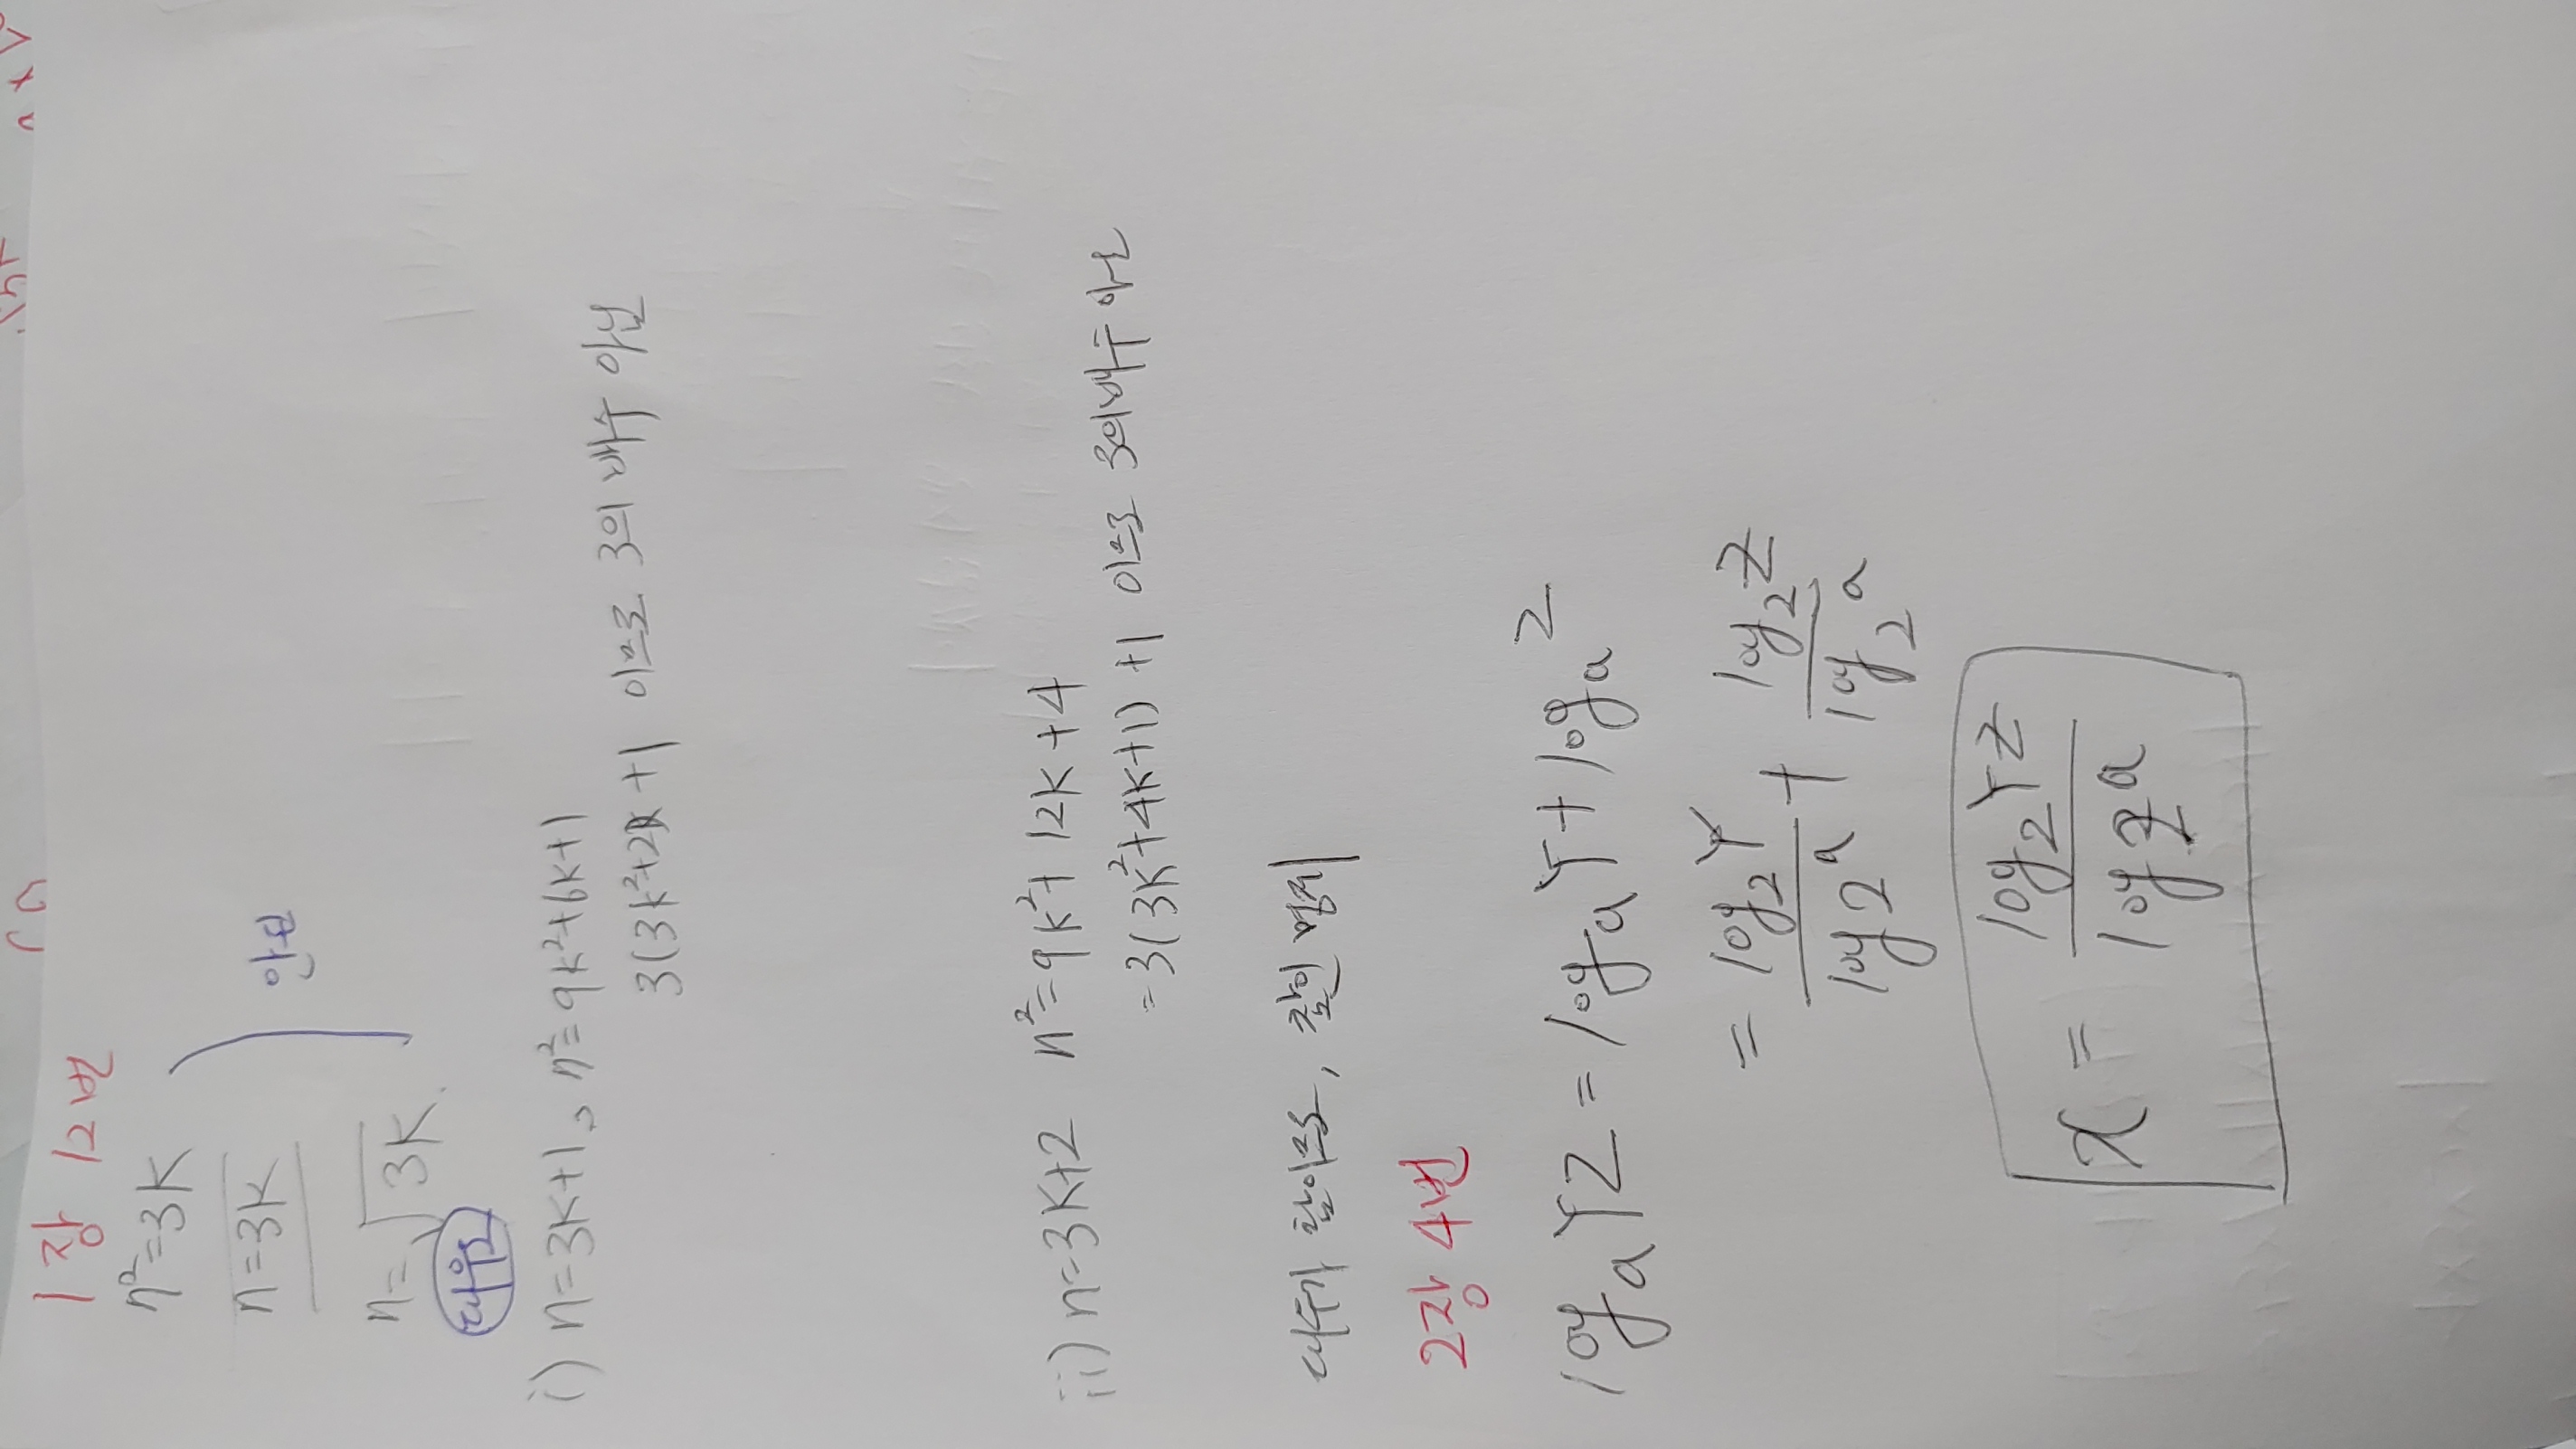 1장 12번
n²=3k
n=3k
n=√3k
안됨
대우
i) n=3k+1, n²=9k²+6k+1
3(3k²+2k +1 이므로 3의 배수 아님
ii) n=3k+2 n²=9k²+12k+4
=3(3k²+4k+1)+1 이므로 3의배수 아님
대우가 참이므로, 참인 명제
2장 4번
log_a YZ = log_a Y + log_a Z
= log₂Y/log₂a + log₂Z/log₂a
x = log₂YZ/log₂a